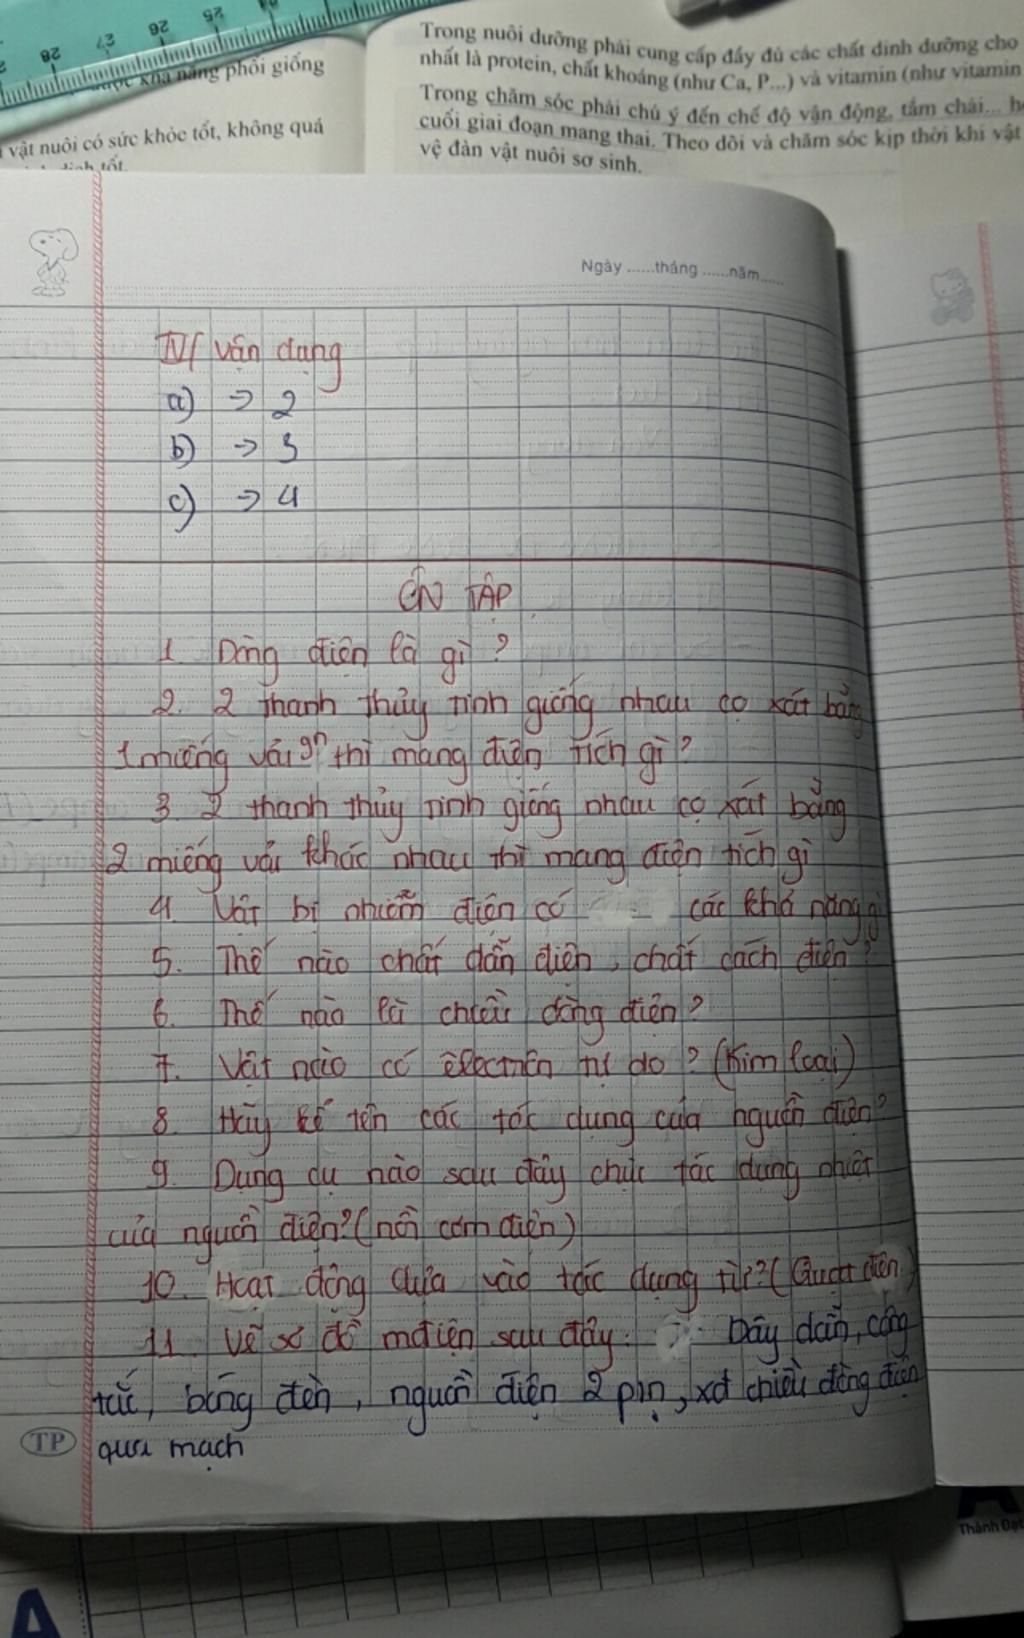 28 27 26 25
khả năng phối giống
vật nuôi có sức khỏe tốt, không quá
Trong nuôi dưỡng phải cung cấp đầy đủ các chất dinh dưỡng cho
nhất là protein, chất khoáng (như Ca, P...) và vitamin (như vitamin
Trong chăm sóc phải chú ý đến chế độ vận động, tắm chải...
cuối giai đoạn mang thai. Theo dõi và chăm sóc kịp thời khi vật
vệ đàn vật nuôi sơ sinh.
Ngày ......tháng ......năm......
IV/ Vận dụng
a) → 2
b) → 3
c) → 4
ÔN TẬP
1. Dòng điện là gì?
2. 2 thanh thủy tinh giống nhau cọ xát bằng
1 miếng vải gn thì mang điện tích gì?
3. 2 thanh thủy tinh giống nhau cọ xát bằng
2 miếng vải khác nhau thì mang điện tích gì
4. Vật bị nhiễm điện có các khả năng gì
5. Thế nào chất dẫn điện, chất cách điện?
6. Thế nào là chiều dòng điện?
7. Vật nào có êlectrôn tự do? (Kim loại)
8. Hãy kể tên các tác dụng của nguồn điện?
9. Dụng cụ nào sau đây chịu tác dụng nhiệt
của nguồn điện? (nồi cơm điện)
10. Hoạt động dựa vào tác dụng từ? (Quạt điện)
11. Vẽ sơ đồ mđiện sau đây: Dây dẫn, công
tắc, bóng đèn, nguồn điện 2 pin, xđ chiều dòng điện
qua mạch
TP
Thành Đạt
A